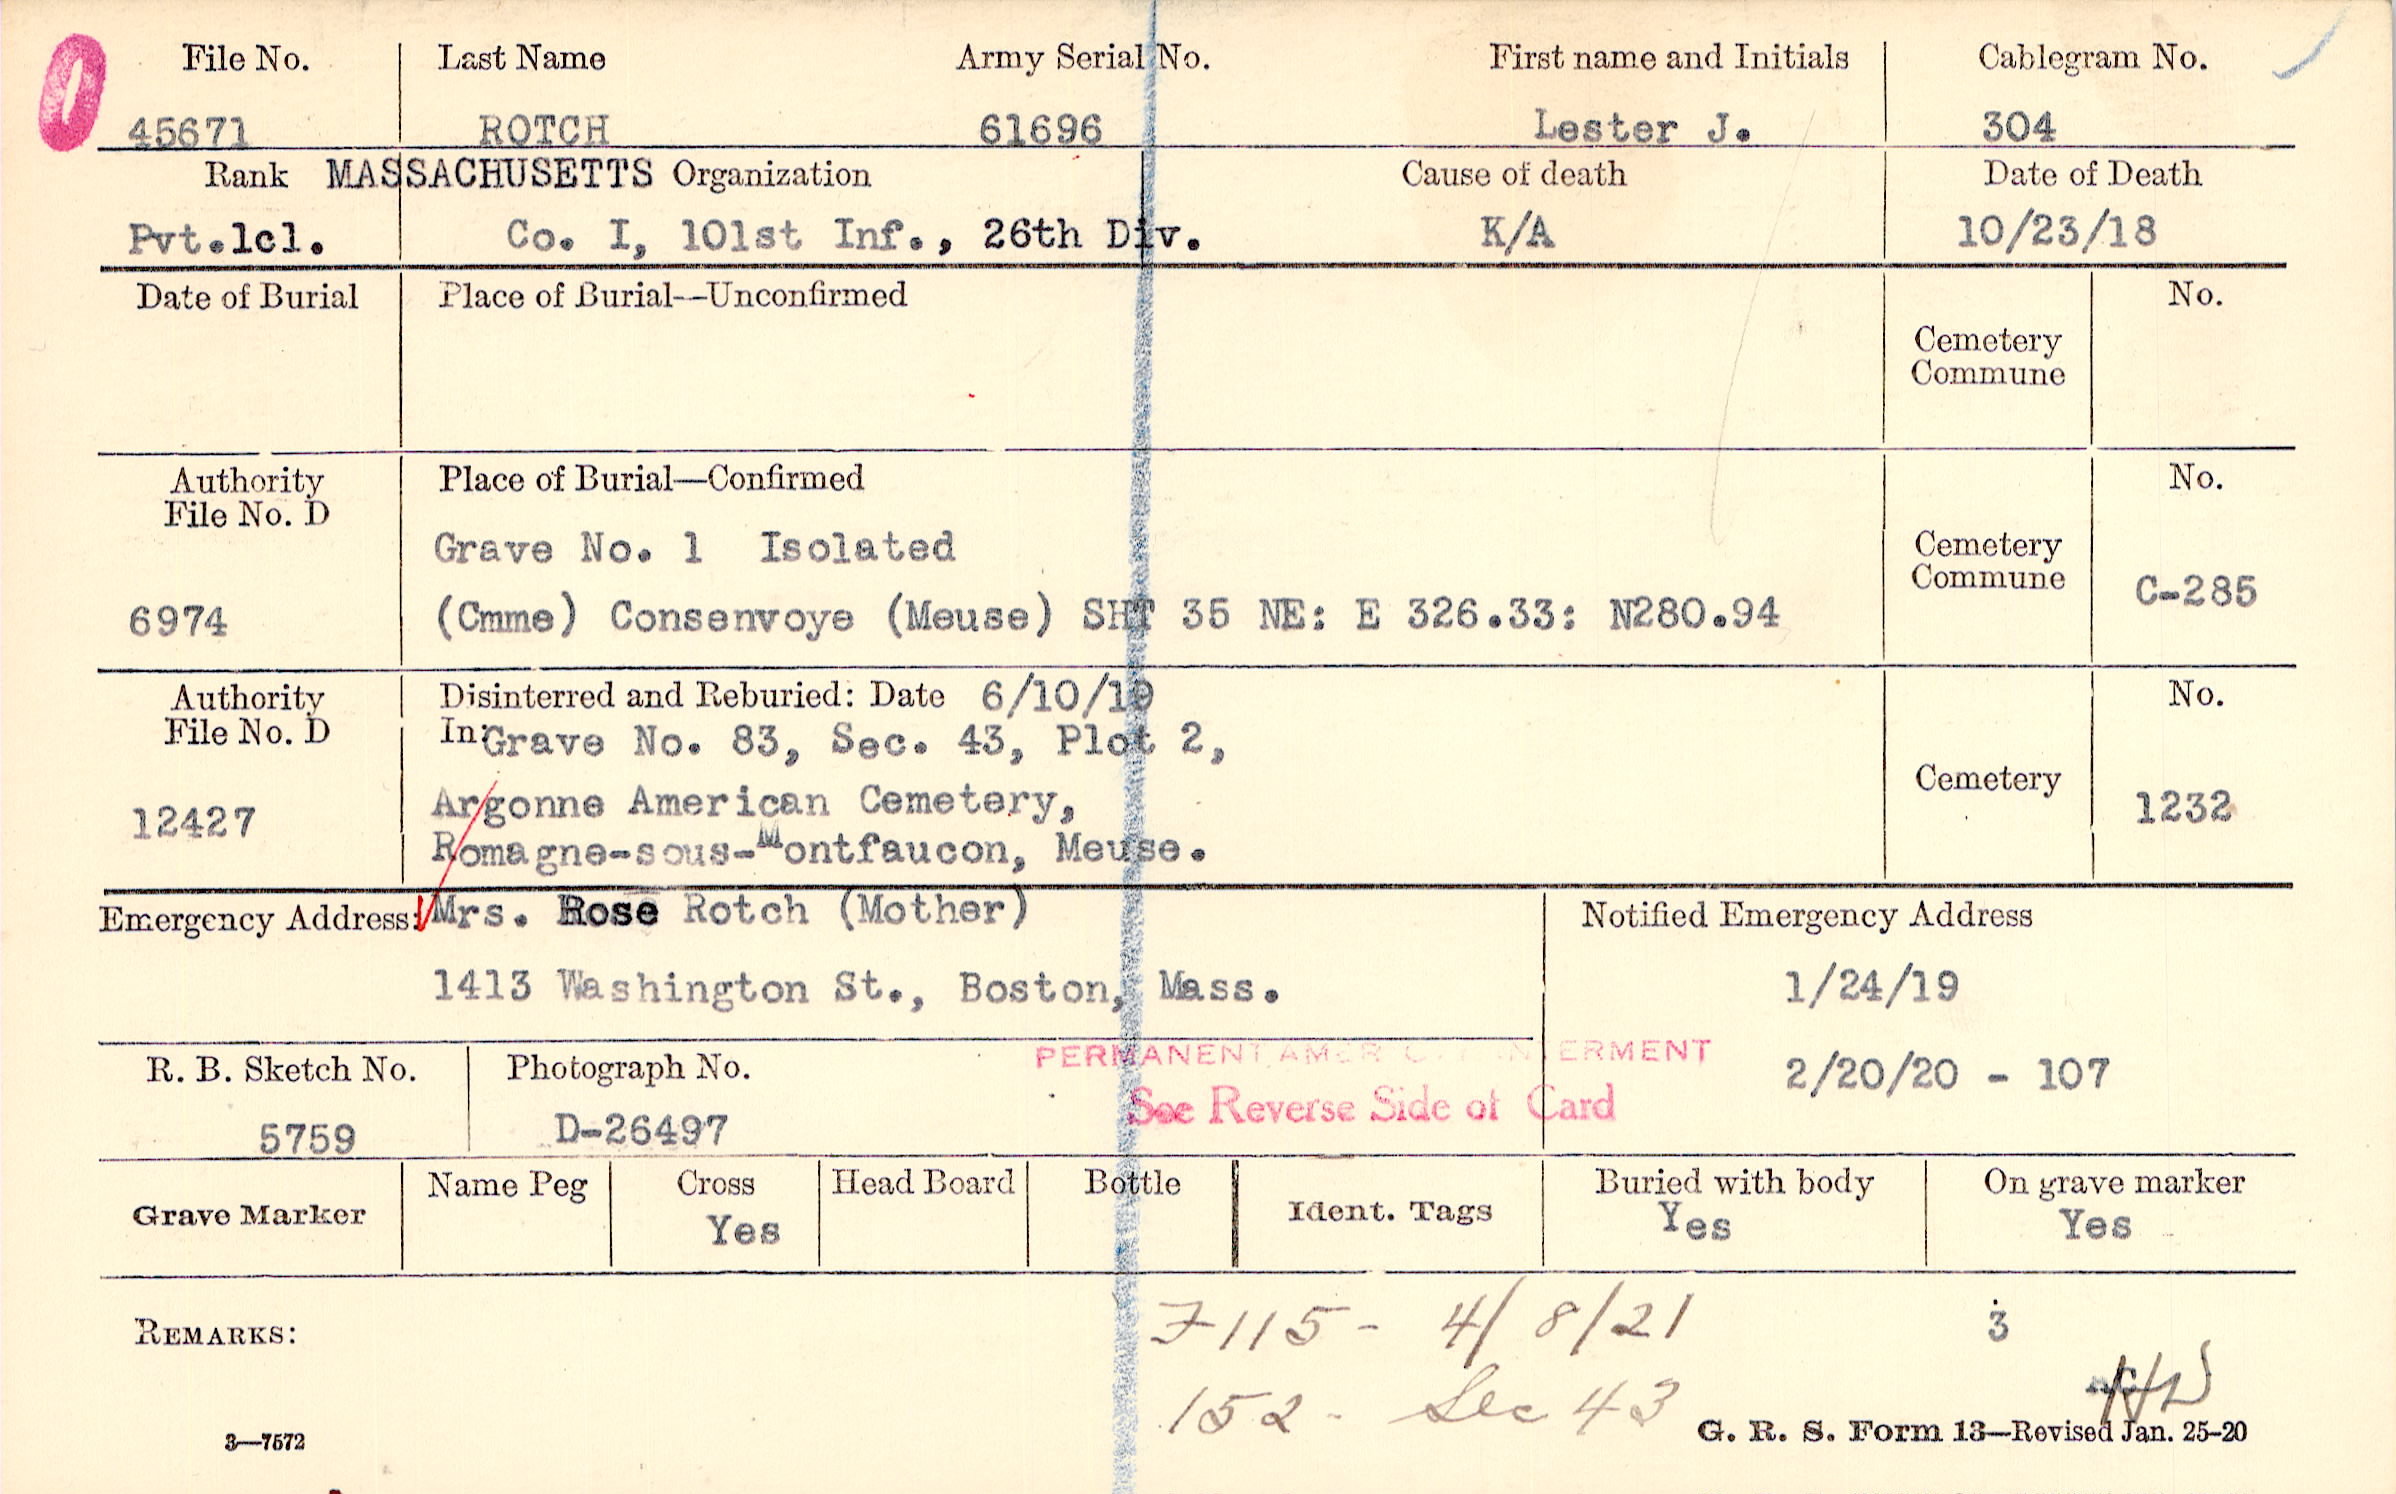 File No. Last Name Army Serial No. First name and Initials Cablegram No.
45671 ROTCH 61696 Lester J. 304
Rank MASSACHUSETTS Organization Cause of death Date of Death
Pvt.1cl. Co. I, 101st Inf., 26th Div. K/A 10/23/18
Date of Burial Place of Burial—Unconfirmed No.
Cemetery
Commune
Authority Place of Burial—Confirmed No.
File No. D
Grave No. 1 Isolated Cemetery
Commune C-285
6974 (Cmme) Consenvoye (Meuse) SHT 35 NE: E 326.33: N280.94
Authority Disinterred and Reburied: Date 6/10/19 No.
File No. D In: Grave No. 83, Sec. 43, Plot 2,
Cemetery
12427 Argonne American Cemetery, 1232
Romagne-sous-Montfaucon, Meuse.
Emergency Address: Mrs. Rose Rotch (Mother) Notified Emergency Address
1413 Washington St., Boston, Mass. 1/24/19
PERMANENT INTERMENT
R. B. Sketch No. Photograph No. 2/20/20 - 107
See Reverse Side of Card
5759 D-26497
Name Peg Cross Head Board Bottle Buried with body On grave marker
Grave Marker Yes Ident. Tags Yes Yes
REMARKS: F115 - 4/8/21 3
152 - Sec 43
3—7572 G. R. S. Form 13—Revised Jan. 25-20